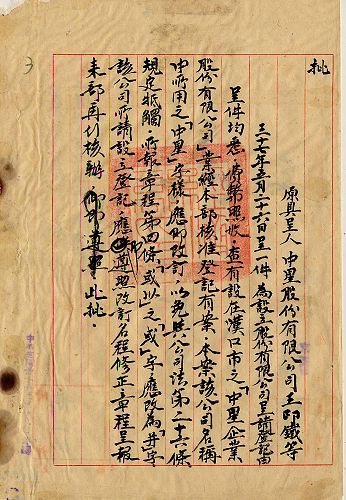 批
原具呈人 中星股份有限公司王印鐵等
三十七年五月二十六日呈一件 為設立股份有限公司呈請登記由
呈件均悉，費幣照收，查有設在漢口市之「中星企業
股份有限公司」業經本部核准登記有案，本案該公司名稱
中所用之「中星」字樣，應即改訂，以免與公司法第二十六條
規定牴觸，所報章程第四條「或以」之「或」字，應改為「并」字
該公司所請設立登記，應遵照改訂名程修正章程呈報
來部再行核辦，仰即遵照 此批。
3